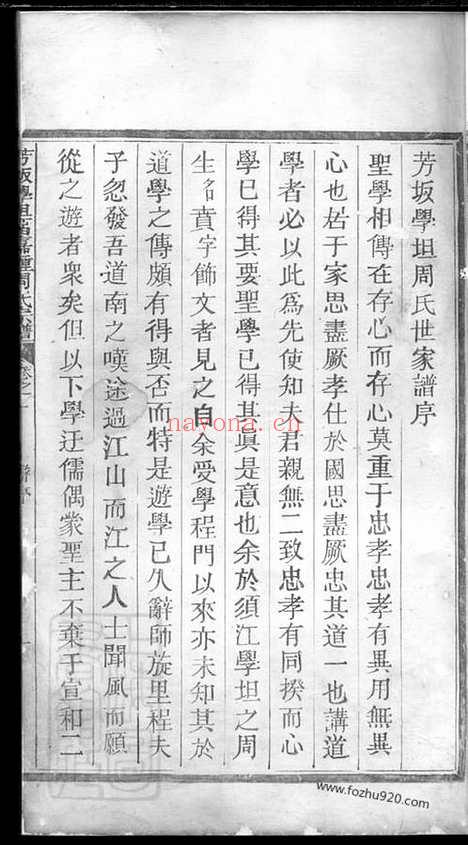 芳坂學坦周氏世家譜序
聖學相傳在存心而存心莫重于忠孝忠孝有異用無異
心也居于家思盡厥孝仕於國思盡厥忠其道一也講道
學者必以此為先使知夫君親無二致忠孝有同揆而心
學已得其要聖學已得其眞是意也余於須江學坦之周
生名賁字飾文者見之自余受學程門以來亦未知其於
道學之傳頗有得與否而特是遊學已久辭師旋里程夫
子忽發吾道南之嘆途過江山而江之人士聞風而願
從之遊者衆矣但以下學迂儒偶蒙聖主不棄于宣和二
芳坂學坦
周氏宗譜
nayona.cn
www.fozhu920.com